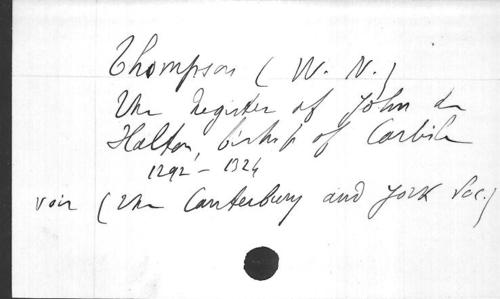 Thompson (W. N.)
The Register of John de
Halton, bishop of Carlisle
1292 - 1324
voir (The Canterbury and York Soc.)